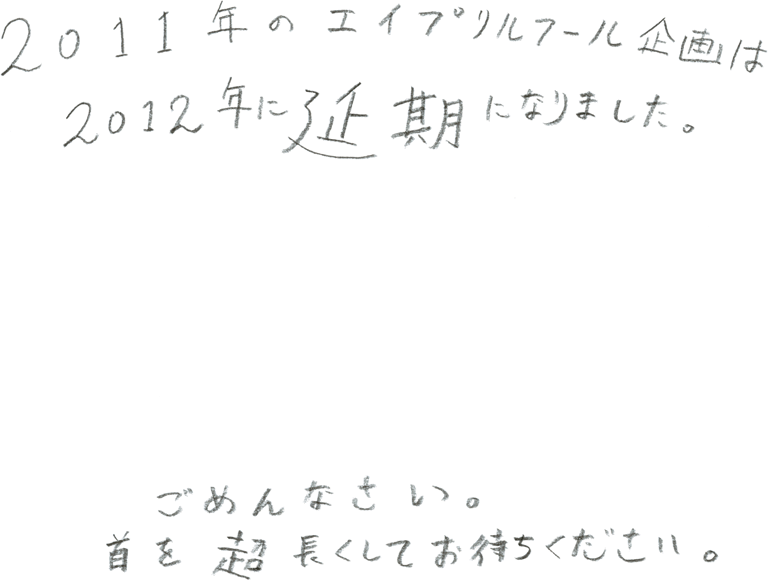 2011年のエイプリルフール企画は
2012年に延期になりました。
ごめんなさい。
首を超長くしてお待ちください。